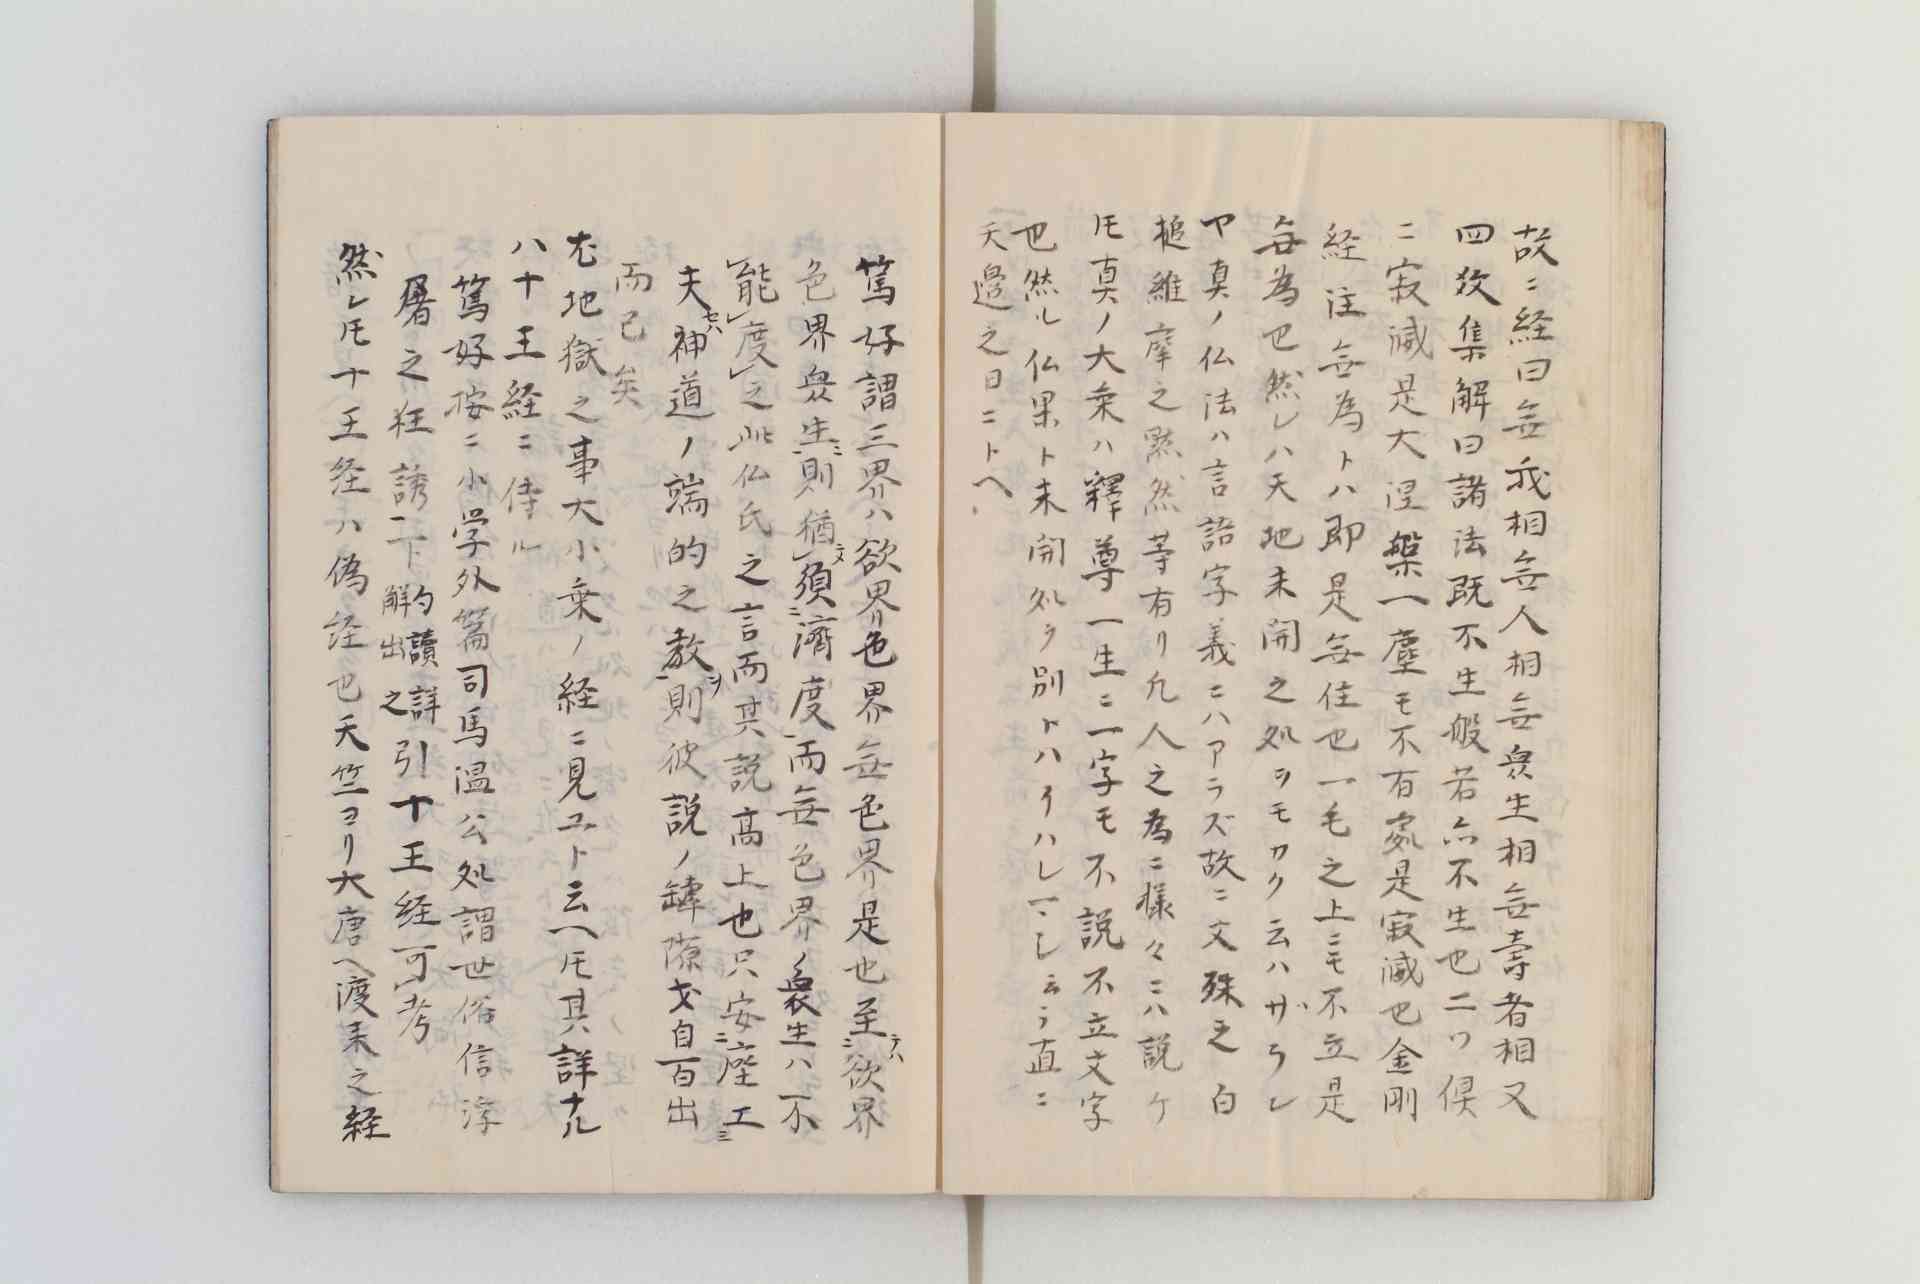 故ニ経曰無我相無人相無衆生相無壽者相又
四教集解曰諸法既不生般若亦不生也二ツ倶
ニ寂滅是大涅槃一塵モ不有処是寂滅也金剛
経注無為トハ即是無住也一毛之上ニモ不立是
無為也然レハ天地未開之処ヲモカク云ハザラレ
ヤ真ノ仏法ハ言語字義ニハアラズ故ニ文殊之白
槌維摩之黙然等有リ凡人之為ニ様々ニハ説ケ
𪜈真ノ大乗ハ釋尊一生ニ一字モ不説不立文字
也然ル仏果ト未開処ヲ別トハイハレ云ラ直ニ
天邊之日ニトヘ
篤好謂三界ハ欲界色界無色界是也至欲界
色界衆生則猶須濟度而無色界ノ衆生ハ不
能度之此仏氏之言而其説高上也只安座工
夫神道ノ端的之教則彼説ノ罅隙戈自百出
而已矣
尤地獄之事大小乗ノ経ニ見ユト云ヘ𪜈其詳ナル
ハ十王経ニ侍ル
篤好按ニ小学外篇司馬温公処謂世俗信浮
屠之狂誘一下句讀詳解出之引十王経可考
然レ𪜈十王経ハ偽経也天竺ヨリ大唐ヘ渡来之経